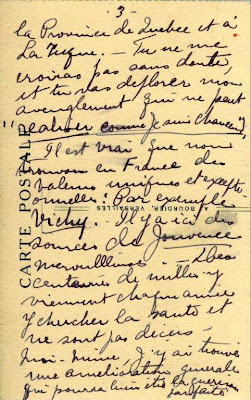 - 3 -
la Province de Quebec et à
La Tuque. — Tu ne me
croiras pas sans doute,
et tu vas déplorer mon
aveuglement qui ne peut
"réaliser comme je suis chanceux"
Il est vrai que nous
trouvons en France des
valeurs uniques et excepti
onnelles. Par exemple
Vichy. Il y a ici des
sources de Jouvence
merveilleuse — Des
centaines de milles y
viennent chaque année
y chercher la santé et
ne sont pas déçus —
Moi-même, j'y ai trouvé
une amélioration generale
qui pourra bien être la guérison
parfaite
CARTE POSTALE